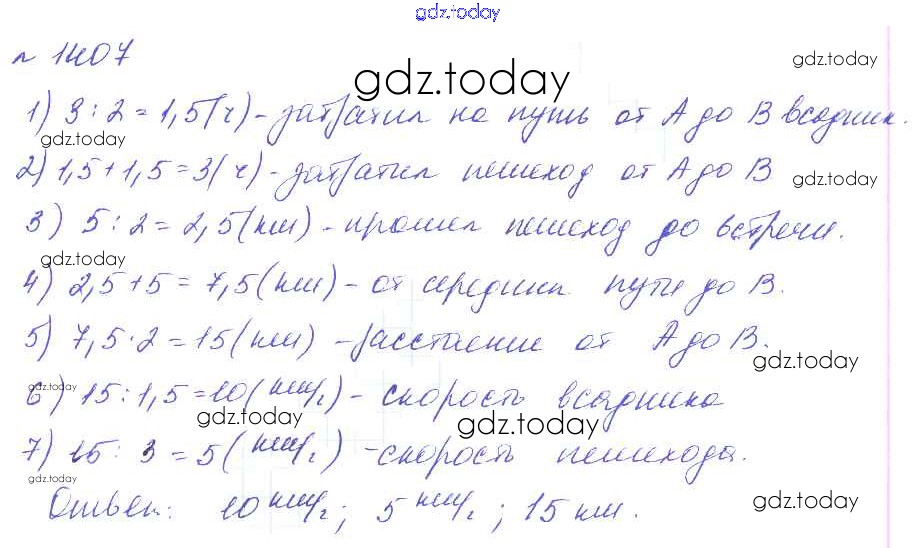 gdz.today
№ 1407
gdz.today
gdz.today
1) 3 : 2 = 1,5 (ч) - затратил на путь от А до В всадник.
gdz.today
2) 1,5 + 1,5 = 3 (ч) - затратил пешеход от А до В
gdz.today
3) 5 : 2 = 2,5 (км) - прошел пешеход до встречи.
gdz.today
4) 2,5 + 5 = 7,5 (км) - от середины пути до В.
gdz.today
5) 7,5 · 2 = 15 (км) - расстояние от А до В.
gdz.today
6) 15 : 1,5 = 10 (км/ч) - скорость всадника
gdz.today
gdz.today
gdz.today
7) 15 : 3 = 5 (км/ч) - скорость пешехода.
gdz.today
Ответ: 10 км/ч; 5 км/ч; 15 км.
gdz.today